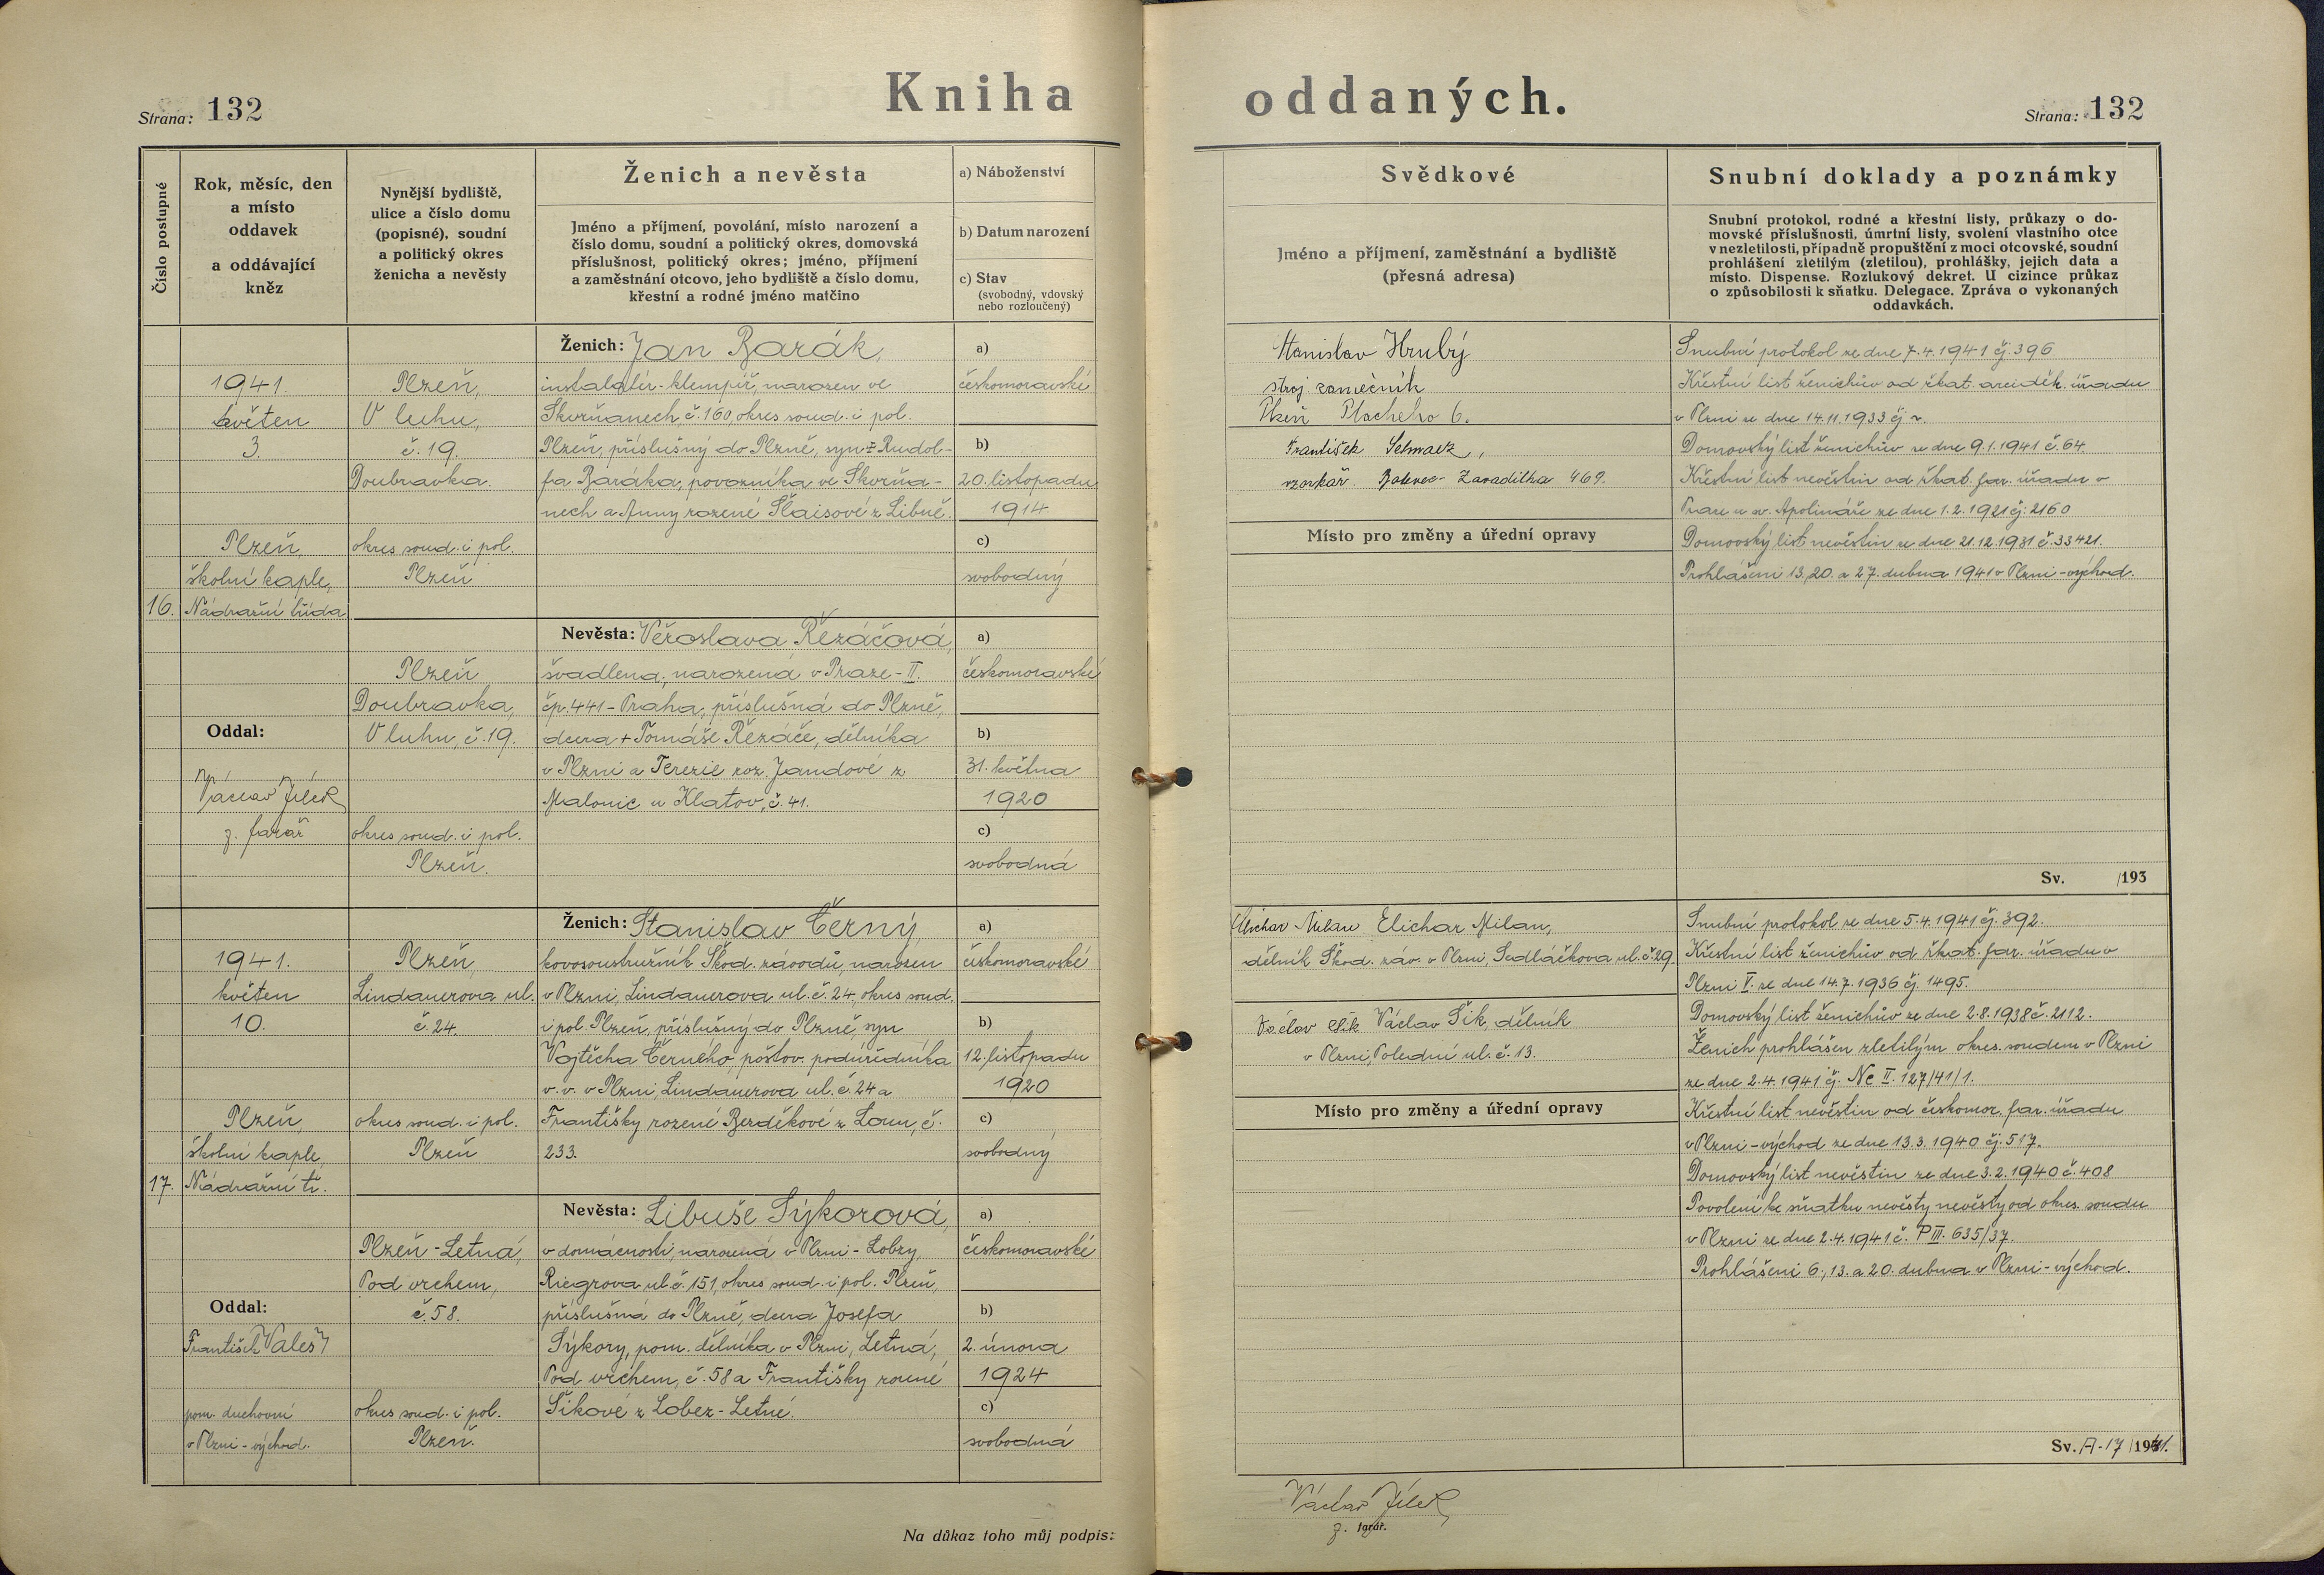 Strana: 132
Kniha
oddaných.
Strana: 132
Číslo postupné
Rok, měsíc, den
a místo
oddavek
a oddávající
kněz
Nynější bydliště,
ulice a číslo domu
(popisné), soudní
a politický okres
ženicha a nevěsty
Ženich a nevěsta
Jméno a příjmení, povolání, místo narození a
číslo domu, soudní a politický okres, domovská
příslušnost, politický okres; jméno, příjmení
a zaměstnání otcovo, jeho bydliště a číslo domu,
křestní a rodné jméno matčino
a) Náboženství
b) Datum narození
c) Stav
(svobodný, vdovský
nebo rozloučený)
Svědkové
Jméno a příjmení, zaměstnání a bydliště
(přesná adresa)
Snubní doklady a poznámky
Snubní protokol, rodné a křestní listy, průkazy o do-
movské příslušnosti, úmrtní listy, svolení vlastního otce
v nezletilosti, případně propuštění z moci otcovské, soudní
prohlášení zletilým (zletilou), prohlášky, jejich data a
místo. Dispense. Rozlukový dekret. U cizince průkaz
o způsobilosti k sňatku. Delegace. Zpráva o vykonaných
oddavkách.
16.
1941.
květen
3.
Plzeň
školní kaple,
Nádražní třída
Oddal:
Václav Jílek
z. farář
Plzeň,
V luhu,
č. 19.
Doubravka.
okres soud. i pol.
Plzeň
Ženich: Jan Barák,
instalatér-klempíř, narozen ve
Skvrňanech, č. 160, okres soud. i pol.
Plzeň, příslušný do Plzně, syn Rudol-
fa Baráka, povozníka ve Skvrňa-
nech a Anny rozené Šlaisové z Libně.
a)
českomoravské
b)
20. listopadu
1914
c)
svobodný
Plzeň
Doubravka,
V luhu, č. 19.
okres soud. i pol.
Plzeň.
Nevěsta: Věroslava Řezáčová,
švadlena, narozená v Praze-II.
čp. 441-Praha, příslušná do Plzně,
dcera + Tomáše Řezáče, dělníka
v Plzni a Terezie roz. Jandové z
Malonic u Klatov, č. 41.
a)
českomoravské
b)
31. května
1920
c)
svobodná
Stanislav Hrubý
stroj. zámečník
Plzeň Plachého 6.
František
vzorkař Bolevec- Zavadilka 469.
Místo pro změny a úřední opravy
Snubní protokol ze dne 7.4.1941 čj. 396
Křestní list ženichův od řkat. arciděk. úřadu
v Plzni ze dne 14.11.1933 čj.
Domovský list ženichův ze dne 9.1.1941 č. 64.
Křestní list nevěstin od řkat. far. úřadu v
Praze u sv. Apolináře ze dne 1.2.1921 čj: 2160
Domovský list nevěstin ze dne 21.12.1931 č. 33421.
Prohlášeni 13., 20. a 27. dubna 1941 v Plzni-východ.
Sv. /193
17.
1941.
květen
10.
Plzeň,
školní kaple,
Nádražní tř.
Oddal:
František Valeš
pom. duchovní
v Plzni-východ.
Plzeň,
Lindauerova ul.
č. 24.
okres soud. i pol.
Plzeň
Ženich: Stanislav Černý,
kovosoustružník Škod. závodů, narozen
v Plzni, Lindauerova ul. č. 24, okres soud.
i pol. Plzeň, příslušný do Plzně, syn
Vojtěcha Černého, poštov. podúředníka
v.v. v Plzni, Lindauerova ul. č. 24 a
Františky rozené Berděkové z Loun, č.
233.
a)
českomoravské
b)
12. listopadu
1920
c)
svobodný
Plzeň-Letná,
Pod vrchem,
č. 58.
okres soud. i pol.
Plzeň.
Nevěsta: Libuše Sýkorová,
v domácnosti, narozená v Plzni-Lobzy,
Riegrova ul. č. 151, okres soud. i pol. Plzeň,
příslušná do Plzně, dcera Josefa
Sýkory, pom. dělníka v Plzni, Letná,
Pod vrchem, č. 58 a Františky rozené
Šikové z Lobez-Letné.
a)
českomoravské
b)
2. února
1924
c)
svobodná
Elichar Milan Elichar Milan,
dělník Škod. záv. v Plzni, Sedláčkova ul. č. 29.
Václav Šik Václav Šik, dělník
v Plzni, Polední ul. č. 13.
Místo pro změny a úřední opravy
Snubní protokol ze dne 5.4.1941 čj. 392.
Křestní list ženichův od řkat. far. úřadu v
Plzni V. ze dne 14.7.1936 čj. 1495.
Domovský list ženichův ze dne 2.8.1938 č. 2112.
Ženich prohlášen zletilým okres. soudem v Plzni
ze dne 2.4.1941 čj. Nc II. 127/41/1.
Křestní list nevěstin od českomor. far. úřadu
v Plzni-východ ze dne 13.3.1940 čj. 517.
Domovský list nevěstin ze dne 3.2.1940 č. 408
Povolení ke sňatku nevěsty nevěsty od okres. soudu
v Plzni ze dne 2.4.1941 č. P III. 635/37.
Prohlášeni 6., 13. a 20. dubna v Plzni-východ.
Sv. A-17/1941.
Na důkaz toho můj podpis:
Václav Jílek
z. farář.